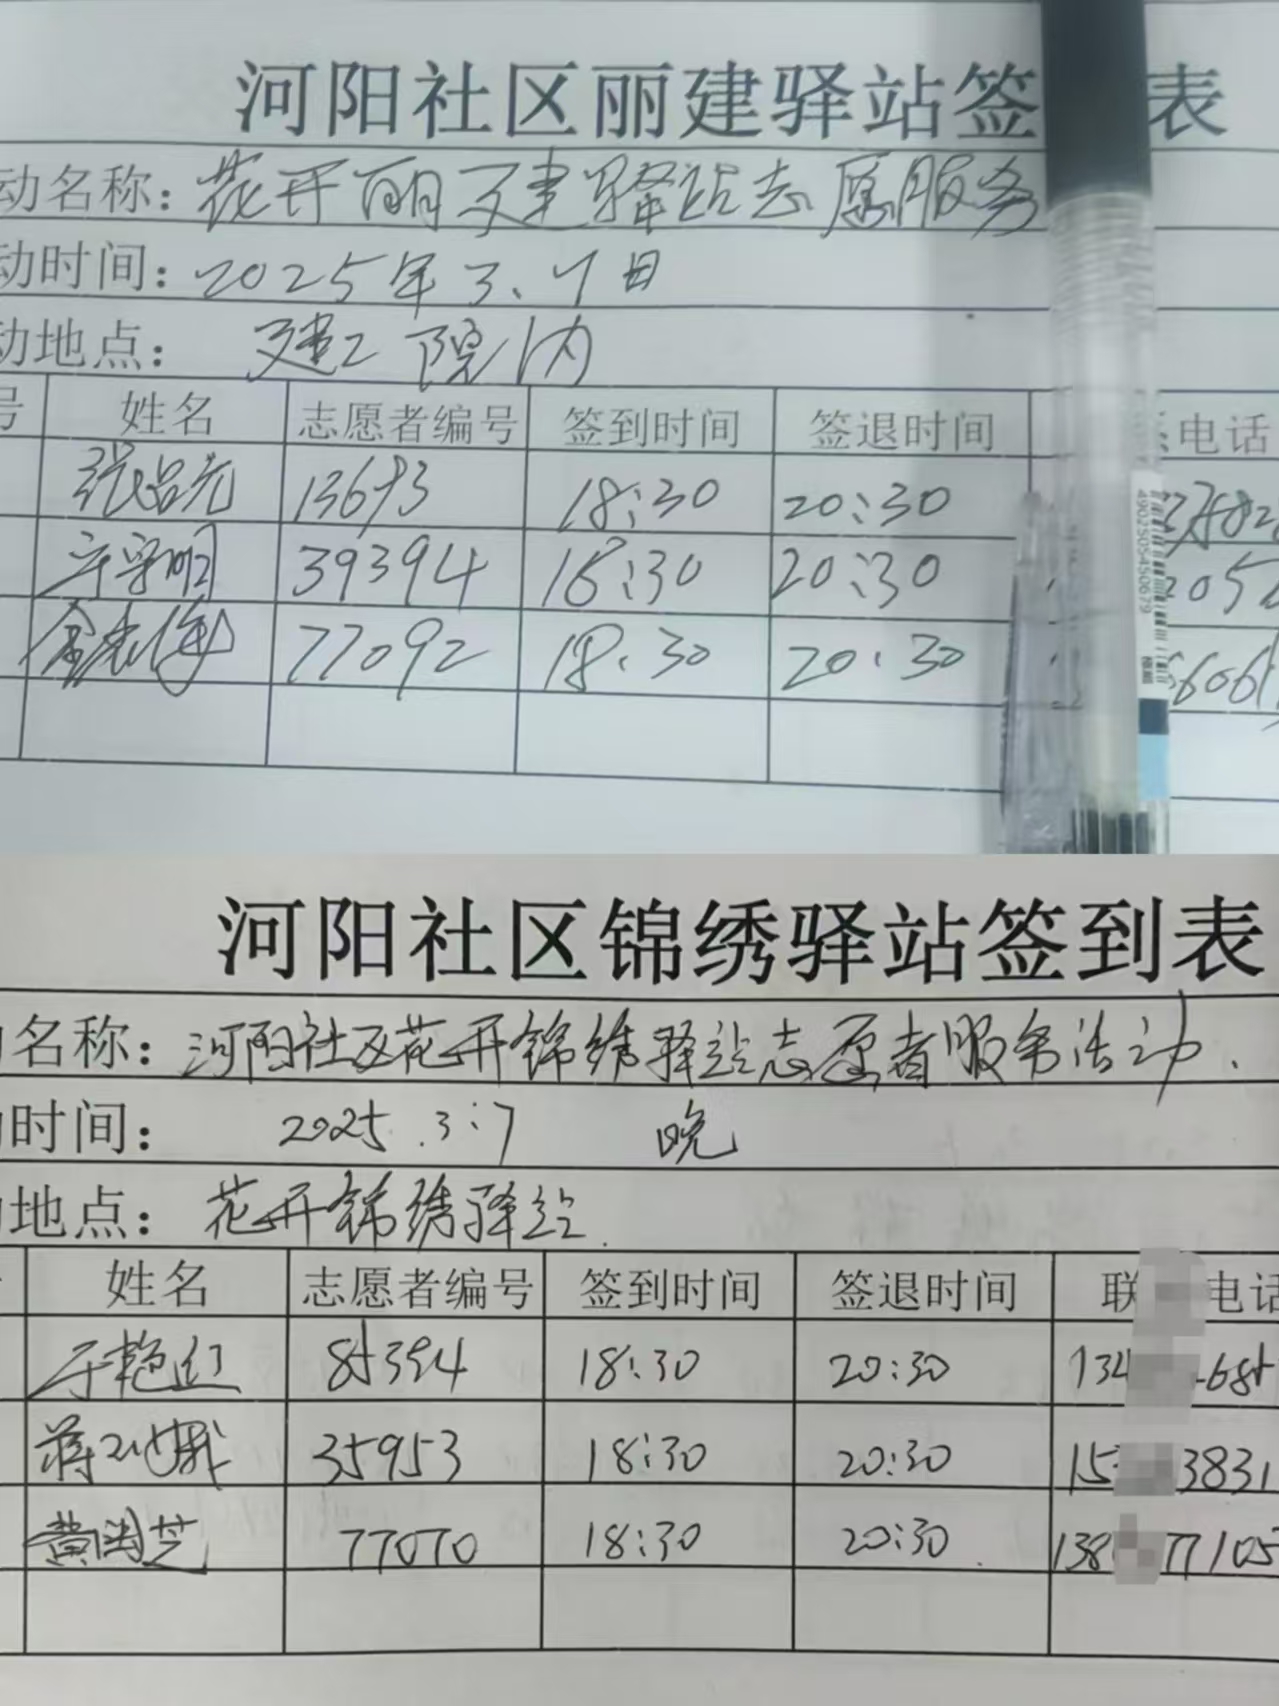 河阳社区丽建驿站签 表
动名称：花开丽建驿站志愿服务
动时间：2025年3.7日
动地点： 建工院内
号 姓名 志愿者编号 签到时间 签退时间 电话
13693 18:30 20:30
于学明 39394 18:30 20:30 205
77092 18:30 20:30 66061
4902505450679
河阳社区锦绣驿站签到表
名称：河阳社区花开锦绣驿站志愿者服务活动.
时间： 2025.3:7 晚
地点：花开锦绣驿站.
姓名 志愿者编号 签到时间 签退时间 联 电话
于艳红 85394 18:30 20:30 134 681
35953 18:30 20:30 15 3831
黄闰芝 77070 18:30 20:30. 138 77105